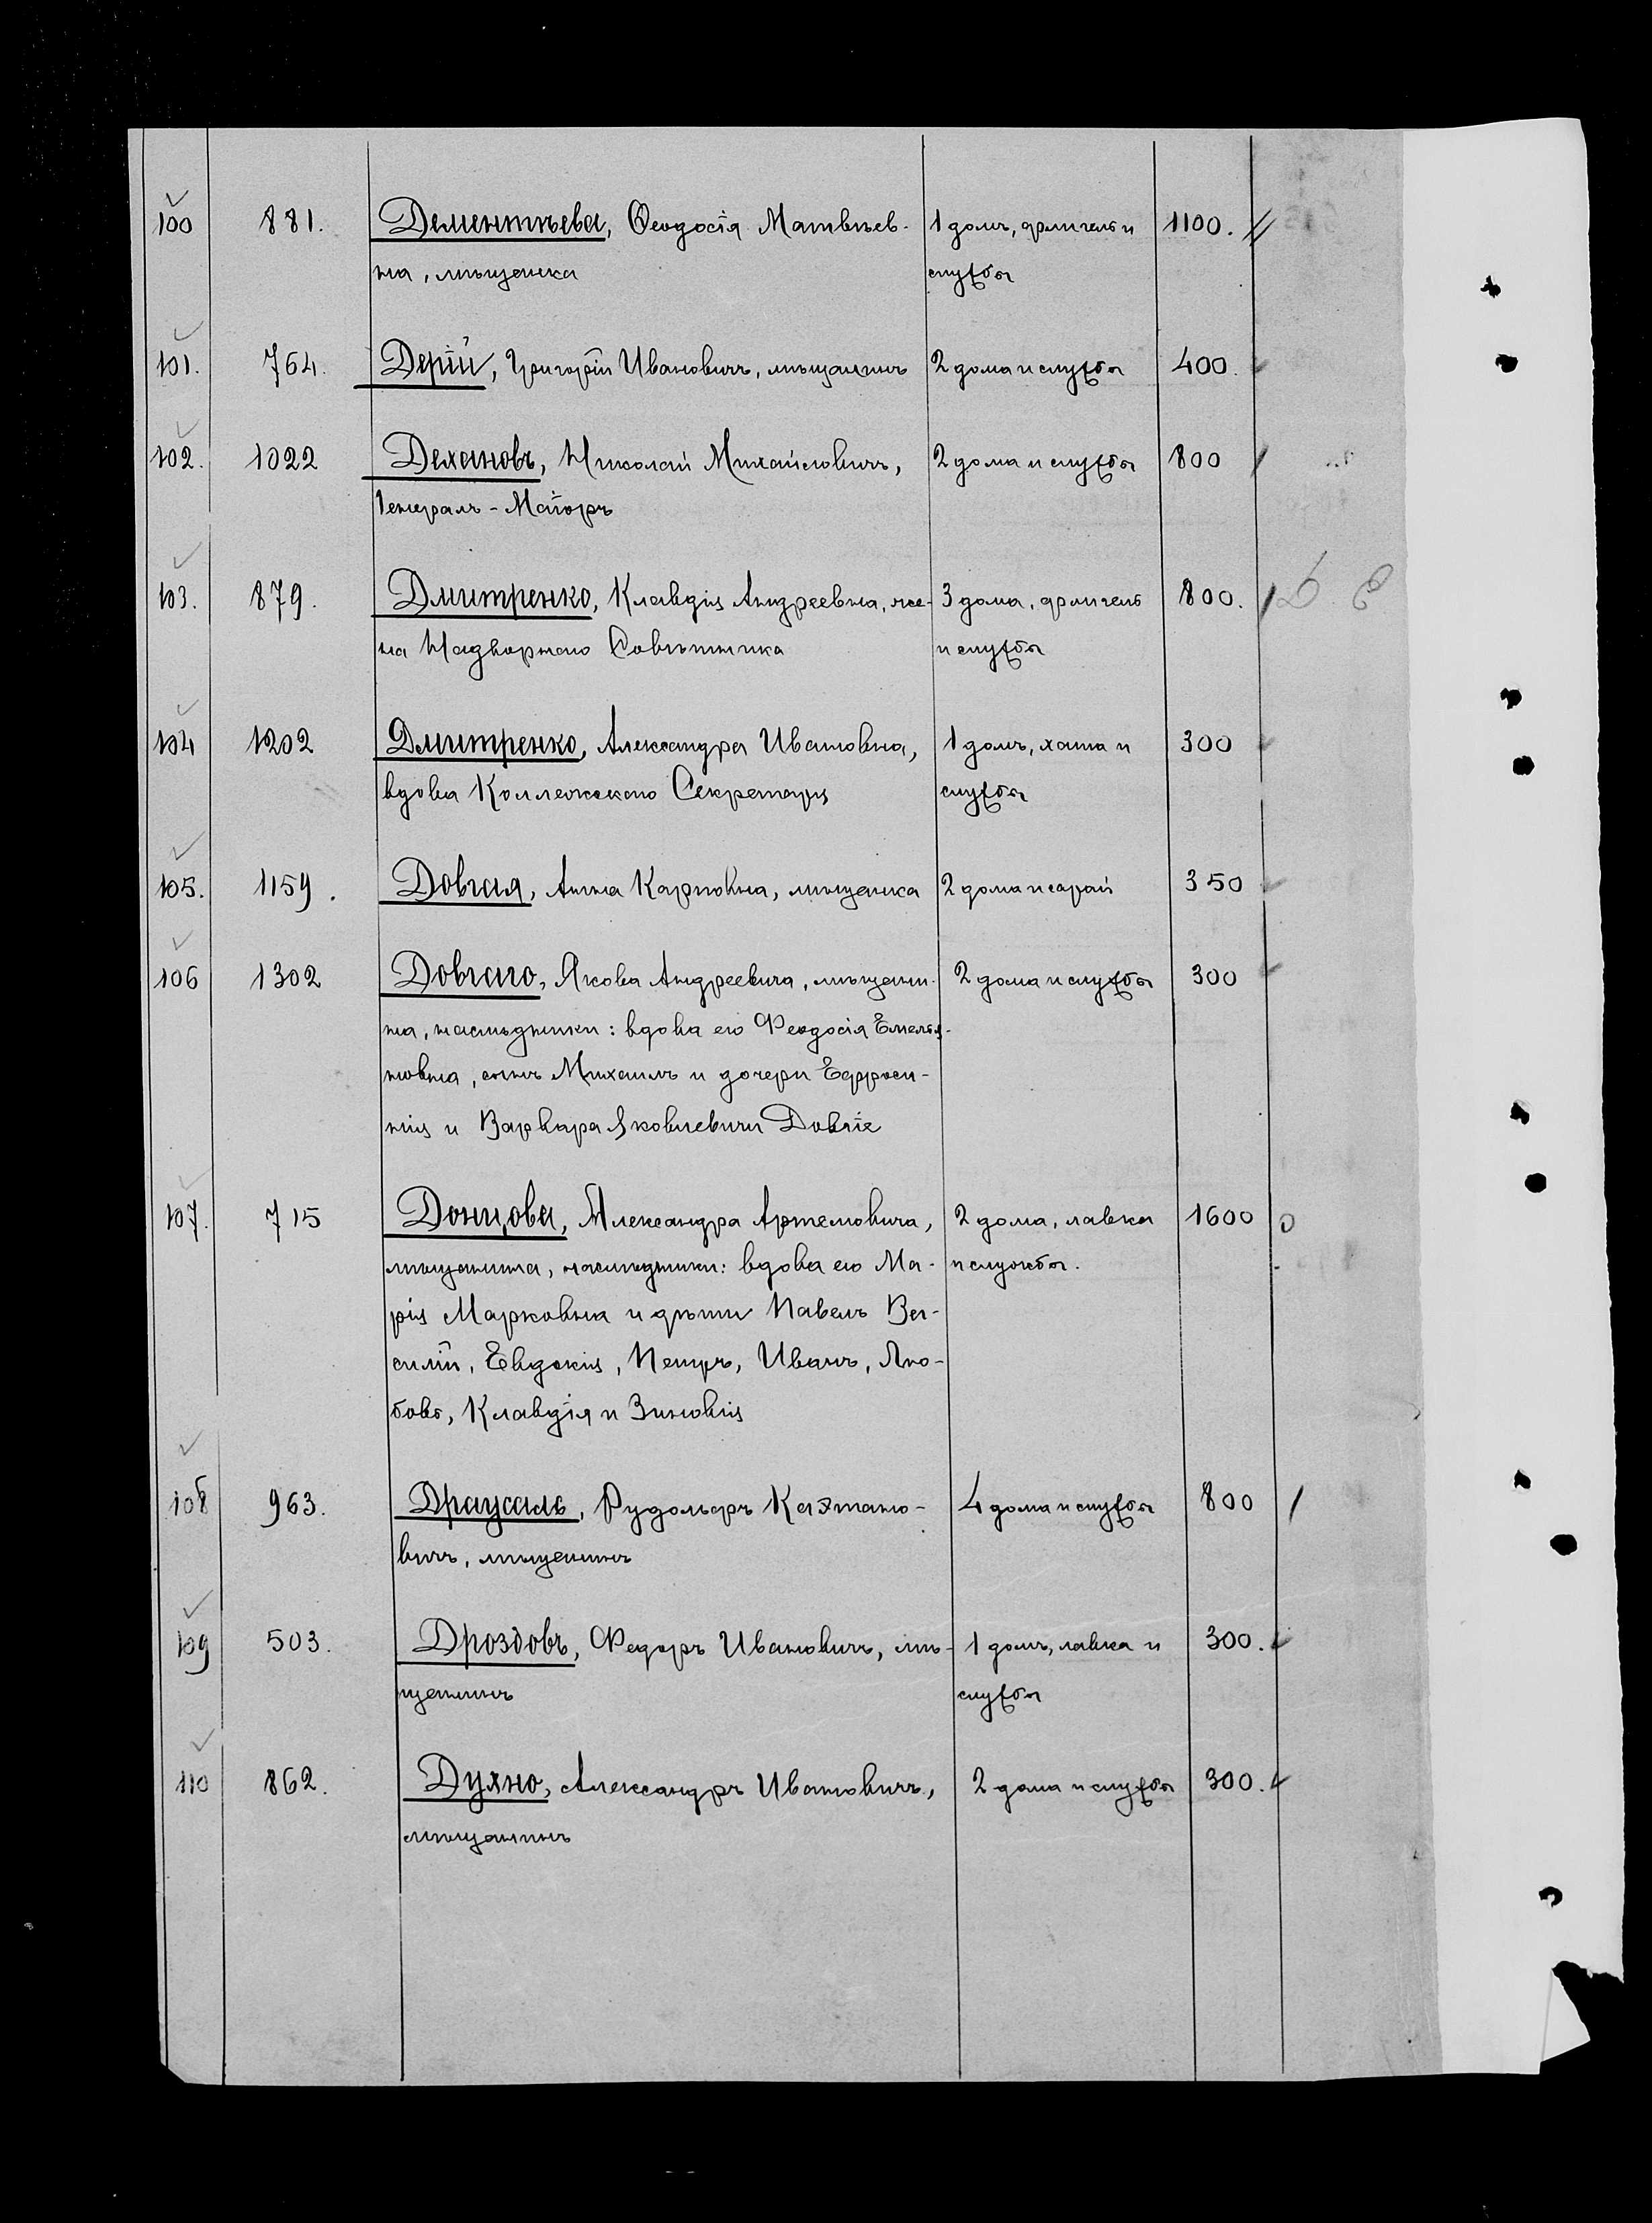 100 881. Дементьева, Ѳеодосія Матвѣев- 1 домъ, флигель и 1100.
на, мѣщанка службы
101. 764. Дерій, Григорій Ивановичъ, мѣщанинъ 2 дома и службы 400.
102. 1022 Дехановъ, Николай Михайловичъ, 2 дома и службы 800
Генералъ-Маіоръ
103. 879. Дмитренко, Клавдія Андреевна, же- 3 дома, флигель 800.
на Надворнаго Совѣтника и службы
104 1202 Дмитренко, Александра Ивановна, 1 домъ, хата и 300
вдова Коллежскаго Секретаря службы
105. 1159. Довгая, Анна Карповна, мѣщанка 2 дома и сарай 350
106 1302 Довгаго, Якова Андреевича, мѣщани- 2 дома и службы 300
на, наслѣдники: вдова его Феодосія Емелья-
новна, сынъ Михаилъ и дочери Ефроси-
нія и Варвара Яковлевичи Довгіе
107. 715 Донцова, Александра Артемовича, 2 дома, лавка 1600
мѣщанина, наслѣдники: вдова его Ма- и службы.
рія Марковна и дѣти Павелъ Ва-
силій, Евдокія, Петръ, Иванъ, Лю-
бовь, Клавдія и Зиновія
108 963. Драусаль, Рудольфъ Каэтано- 4 дома и службы 800
вичъ, мѣщанинъ
109 503. Дроздовъ, Федоръ Ивановичъ, мѣ- 1 домъ, лавка и 300.
щанинъ службы
110 862. Духно, Александръ Ивановичъ, 2 дома и службы 300.
мѣщанинъ